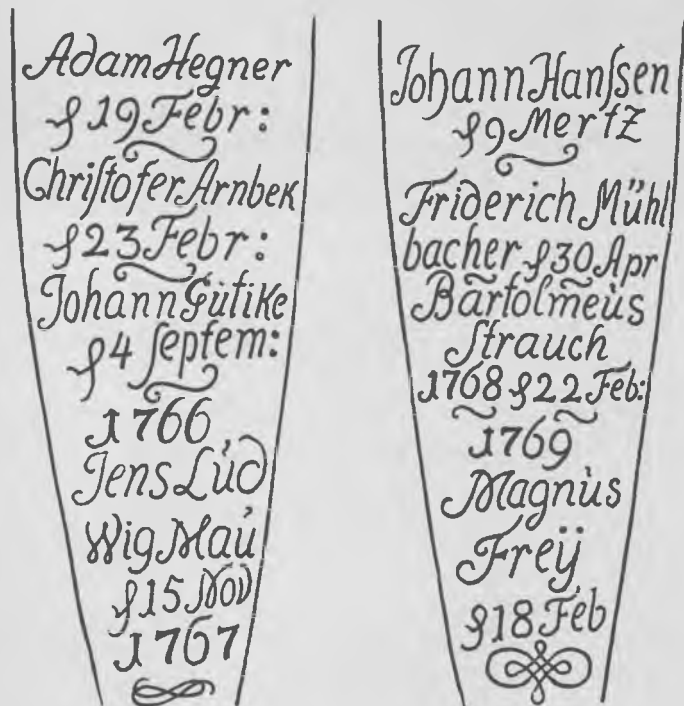 Adam Hegner
§ 19 Febr:
Chriſtofer Arnbek
§ 23 Febr:
Johann Gùtike
§ 4 ſeptem:
1766
Jens Lùd
Wig Maù
§ 15 Nov
1767
Johann Hanſsen
§ 9 Mertz
Friderich Mühl
bacher § 30 Apr
Bartolmeùs
Strauch
1768 § 22 Feb:
1769
Magnùs
Freÿ
§ 18 Feb